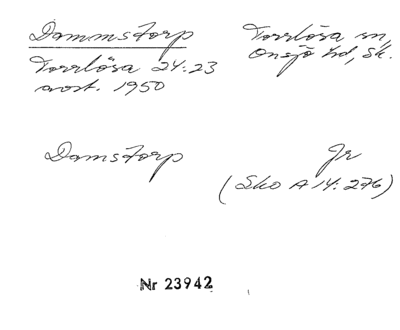 Dammstorp
Torrlösa sn,
Onsjö hd, Sk.
Torrlösa 24:23
avst. 1950
Damstorp
Jr
(Sko A 14: 276)
Nr 23942